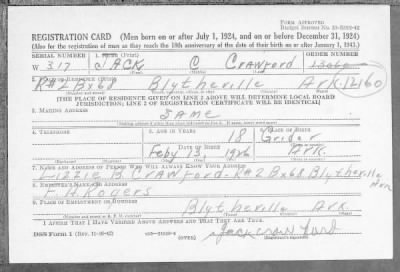 FORM APPROVED
REGISTRATION CARD (Men born on or after July 1, 1924, and on or before December 31, 1924)
(Also for the registration of men as they reach the 18th anniversary of the date of their birth on or after January 1, 1943.)
SERIAL NUMBER 1. NAME (Print) ORDER NUMBER
W 317 JACK C CRAWford
(First) (Middle) (Last)
2. PLACE OF RESIDENCE (Print)
R#2 Bx68 Blytheville Ark. 12160
[THE PLACE OF RESIDENCE GIVEN ON LINE 2 ABOVE WILL DETERMINE LOCAL BOARD
JURISDICTION; LINE 2 OF REGISTRATION CERTIFICATE WILL BE IDENTICAL]
3. MAILING ADDRESS
SAME
4. TELEPHONE 5. AGE IN YEARS 6. PLACE OF BIRTH
18 Grider
DATE OF BIRTH
Feby 13 1926 Ark.
7. NAME AND ADDRESS OF PERSON WHO WILL ALWAYS KNOW YOUR ADDRESS
Lizzie B CRAWford-R#2 Bx68 Blytheville Ark
8. EMPLOYER'S NAME AND ADDRESS
Rogers
9. PLACE OF EMPLOYMENT OR BUSINESS
Blytheville Ark.
I AFFIRM THAT I HAVE VERIFIED ABOVE ANSWERS AND THAT THEY ARE TRUE.
DSS Form 1 (OVER) Jack Crawford
(Registrant's signature)